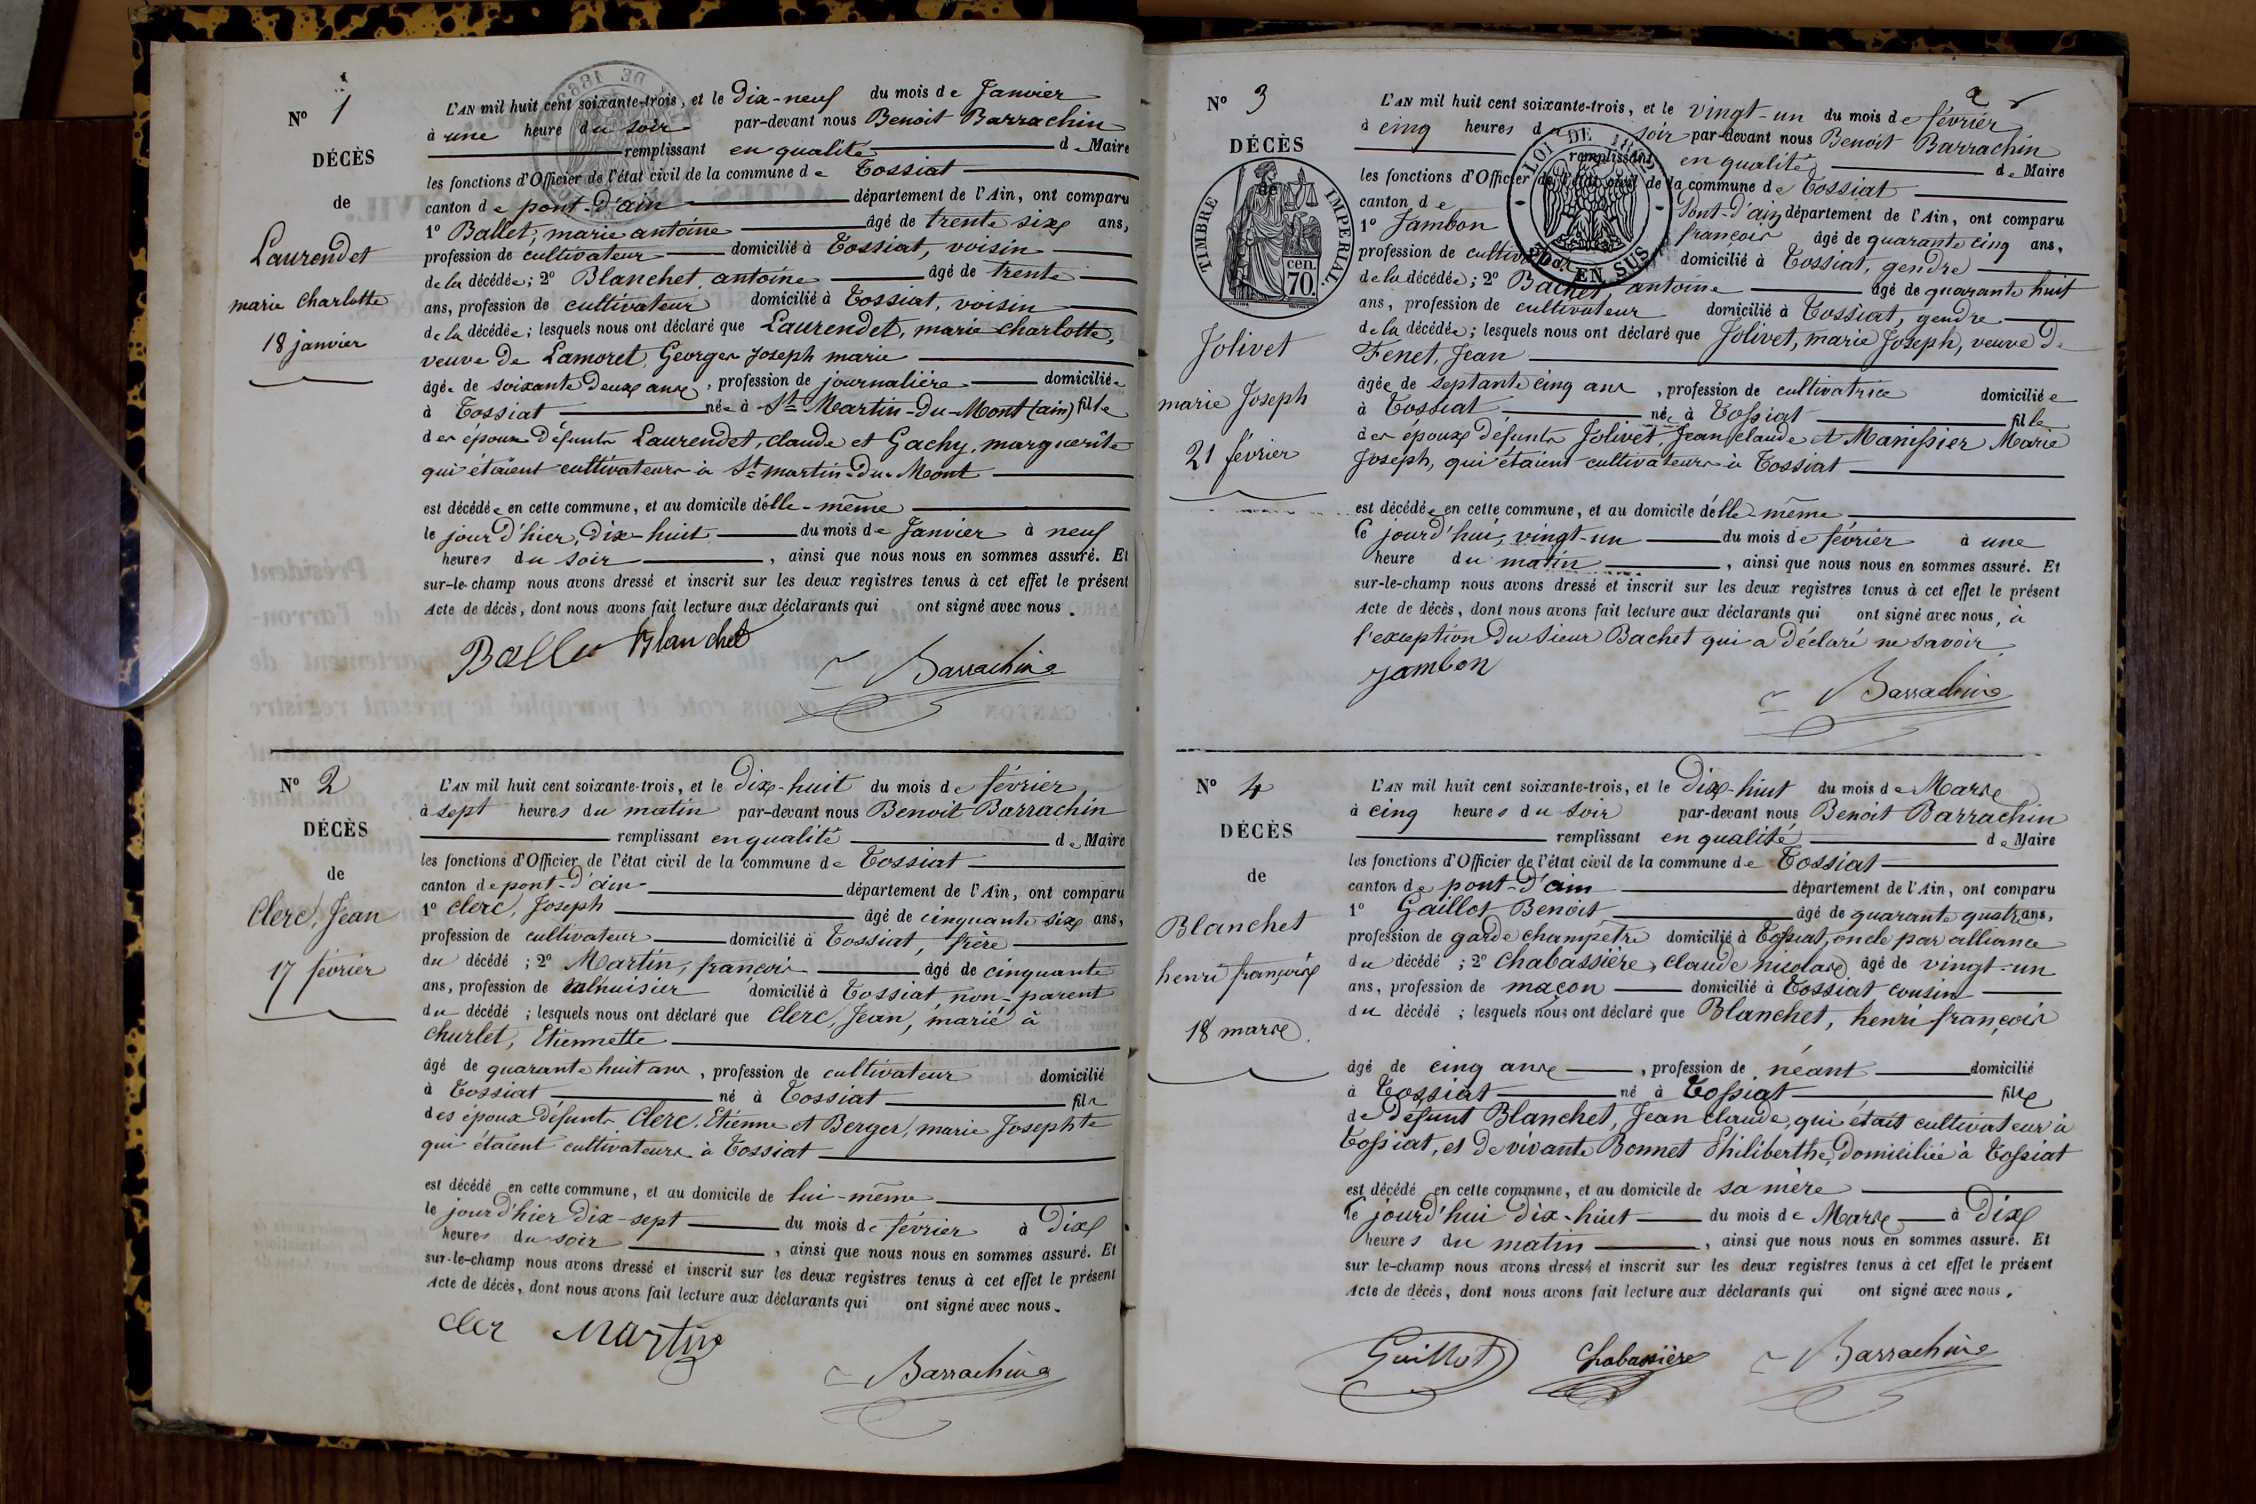 Nº 1
DÉCÈS
de
Laurendet
marie charlotte
18 janvier
L'AN mil huit cent soixante-trois, et le dix-neuf du mois de Janvier
à une heure du soir par-devant nous Benoit Barrachin
remplissant en qualité de Maire
les fonctions d'Officier de l'état civil de la commune de Tossiat
canton de pont-d'ain département de l'Ain, ont comparu
1º Ballet, marie antoine âgé de trente six ans,
profession de cultivateur domicilié à Tossiat, voisin
de la décédée; 2º Blanchet, antoine âgé de trente
ans, profession de cultivateur domicilié à Tossiat, voisin
de la décédée; lesquels nous ont déclaré que Laurendet, marie charlotte,
veuve de Lamoret, Georges Joseph marie
âgée de soixante deux ans, profession de journalière domiciliée
à Tossiat née à St Martin-du-Mont (ain) fille
des époux défunts Laurendet, claude et Gachy, marguerite
qui étaient cultivateurs à St martin-du-Mont
est décédée en cette commune, et au domicile d'elle-même
le jour d'hier, dix-huit du mois de Janvier à neuf
heures du soir, ainsi que nous nous en sommes assuré. Et
sur-le-champ nous avons dressé et inscrit sur les deux registres tenus à cet effet le présent
Acte de décès, dont nous avons fait lecture aux déclarants qui ont signé avec nous.
Ballet Blanchet
Barrachin
Nº 2
DÉCÈS
de
Clerc, Jean
17 février
L'AN mil huit cent soixante-trois, et le dix-huit du mois de février
à sept heures du matin par-devant nous Benoit Barrachin
remplissant en qualité de Maire
les fonctions d'Officier de l'état civil de la commune de Tossiat
canton de pont-d'ain département de l'Ain, ont comparu
1º Clerc, Joseph âgé de cinquante six ans,
profession de cultivateur domicilié à Tossiat, frère
du décédé; 2º Martin, françois âgé de cinquante
ans, profession de menuisier domicilié à Tossiat, non-parent
du décédé; lesquels nous ont déclaré que Clerc, Jean, marié à
Churlet, Etiennette
âgé de quarante huit ans, profession de cultivateur domicilié
à Tossiat né à Tossiat fils
des époux défunts Clerc, Etienne et Berger, marie Josephte
qui étaient cultivateurs à Tossiat
est décédé en cette commune, et au domicile de lui-même
le jour d'hier dix-sept du mois de février à dix
heures du soir, ainsi que nous nous en sommes assuré. Et
sur-le-champ nous avons dressé et inscrit sur les deux registres tenus à cet effet le présent
Acte de décès, dont nous avons fait lecture aux déclarants qui ont signé avec nous.
Cler Martin
Barrachin
2
Nº 3
DÉCÈS
de
TIMBRE IMPÉRIAL
70 cen.
Jolivet
marie Joseph
21 février
LOI DE 1862
EN SUS
L'AN mil huit cent soixante-trois, et le vingt-un du mois de février
à cinq heures du soir par-devant nous Benoit Barrachin
remplissant en qualité de Maire
les fonctions d'Officier de l'état civil de la commune de Tossiat
canton de Pont-d'ain département de l'Ain, ont comparu
1º Jambon françois âgé de quarante cinq ans,
profession de cultivateur domicilié à Tossiat, gendre
de la décédée; 2º Bachet, antoine âgé de quarante huit
ans, profession de cultivateur domicilié à Tossiat, gendre
de la décédée; lesquels nous ont déclaré que Jolivet, marie Joseph, veuve de
Fenet, Jean
âgée de septante cinq ans, profession de cultivatrice domiciliée
à Tossiat née à Tossiat fille
des époux défunts Jolivet, Jean claude et Manissier Marie
Joseph, qui étaient cultivateurs à Tossiat
est décédée en cette commune, et au domicile d'elle-même
le jourd'hui, vingt-un du mois de février à une
heure du matin, ainsi que nous nous en sommes assuré. Et
sur-le-champ nous avons dressé et inscrit sur les deux registres tenus à cet effet le présent
Acte de décès, dont nous avons fait lecture aux déclarants qui ont signé avec nous, à
l'exception du sieur Bachet qui a déclaré ne savoir.
Jambon
Barrachin
Nº 4
DÉCÈS
de
Blanchet
henri françois
18 mars.
L'AN mil huit cent soixante-trois, et le dix-huit du mois de Mars
à cinq heures du soir par-devant nous Benoit Barrachin
remplissant en qualité de Maire
les fonctions d'Officier de l'état civil de la commune de Tossiat
canton de pont-d'ain département de l'Ain, ont comparu
1º Gaillot Benoit âgé de quarante quatre ans,
profession de garde champêtre domicilié à Tossiat, oncle par alliance
du décédé; 2º Chabassière, claude nicolas âgé de vingt-un
ans, profession de maçon domicilié à Tossiat cousin
du décédé; lesquels nous ont déclaré que Blanchet, henri françois
âgé de cinq ans, profession de néant domicilié
à Tossiat né à Tossiat fils
de défunt Blanchet, Jean claude, qui était cultivateur à
Tossiat, et de vivante Bonnet Philiberthe, domiciliée à Tossiat
est décédé en cette commune, et au domicile de sa mère
le jourd'hui dix-huit du mois de Mars à dix
heures du matin, ainsi que nous nous en sommes assuré. Et
sur le-champ nous avons dressé et inscrit sur les deux registres tenus à cet effet le présent
Acte de décès, dont nous avons fait lecture aux déclarants qui ont signé avec nous.
Guillot Chabassière Barrachin